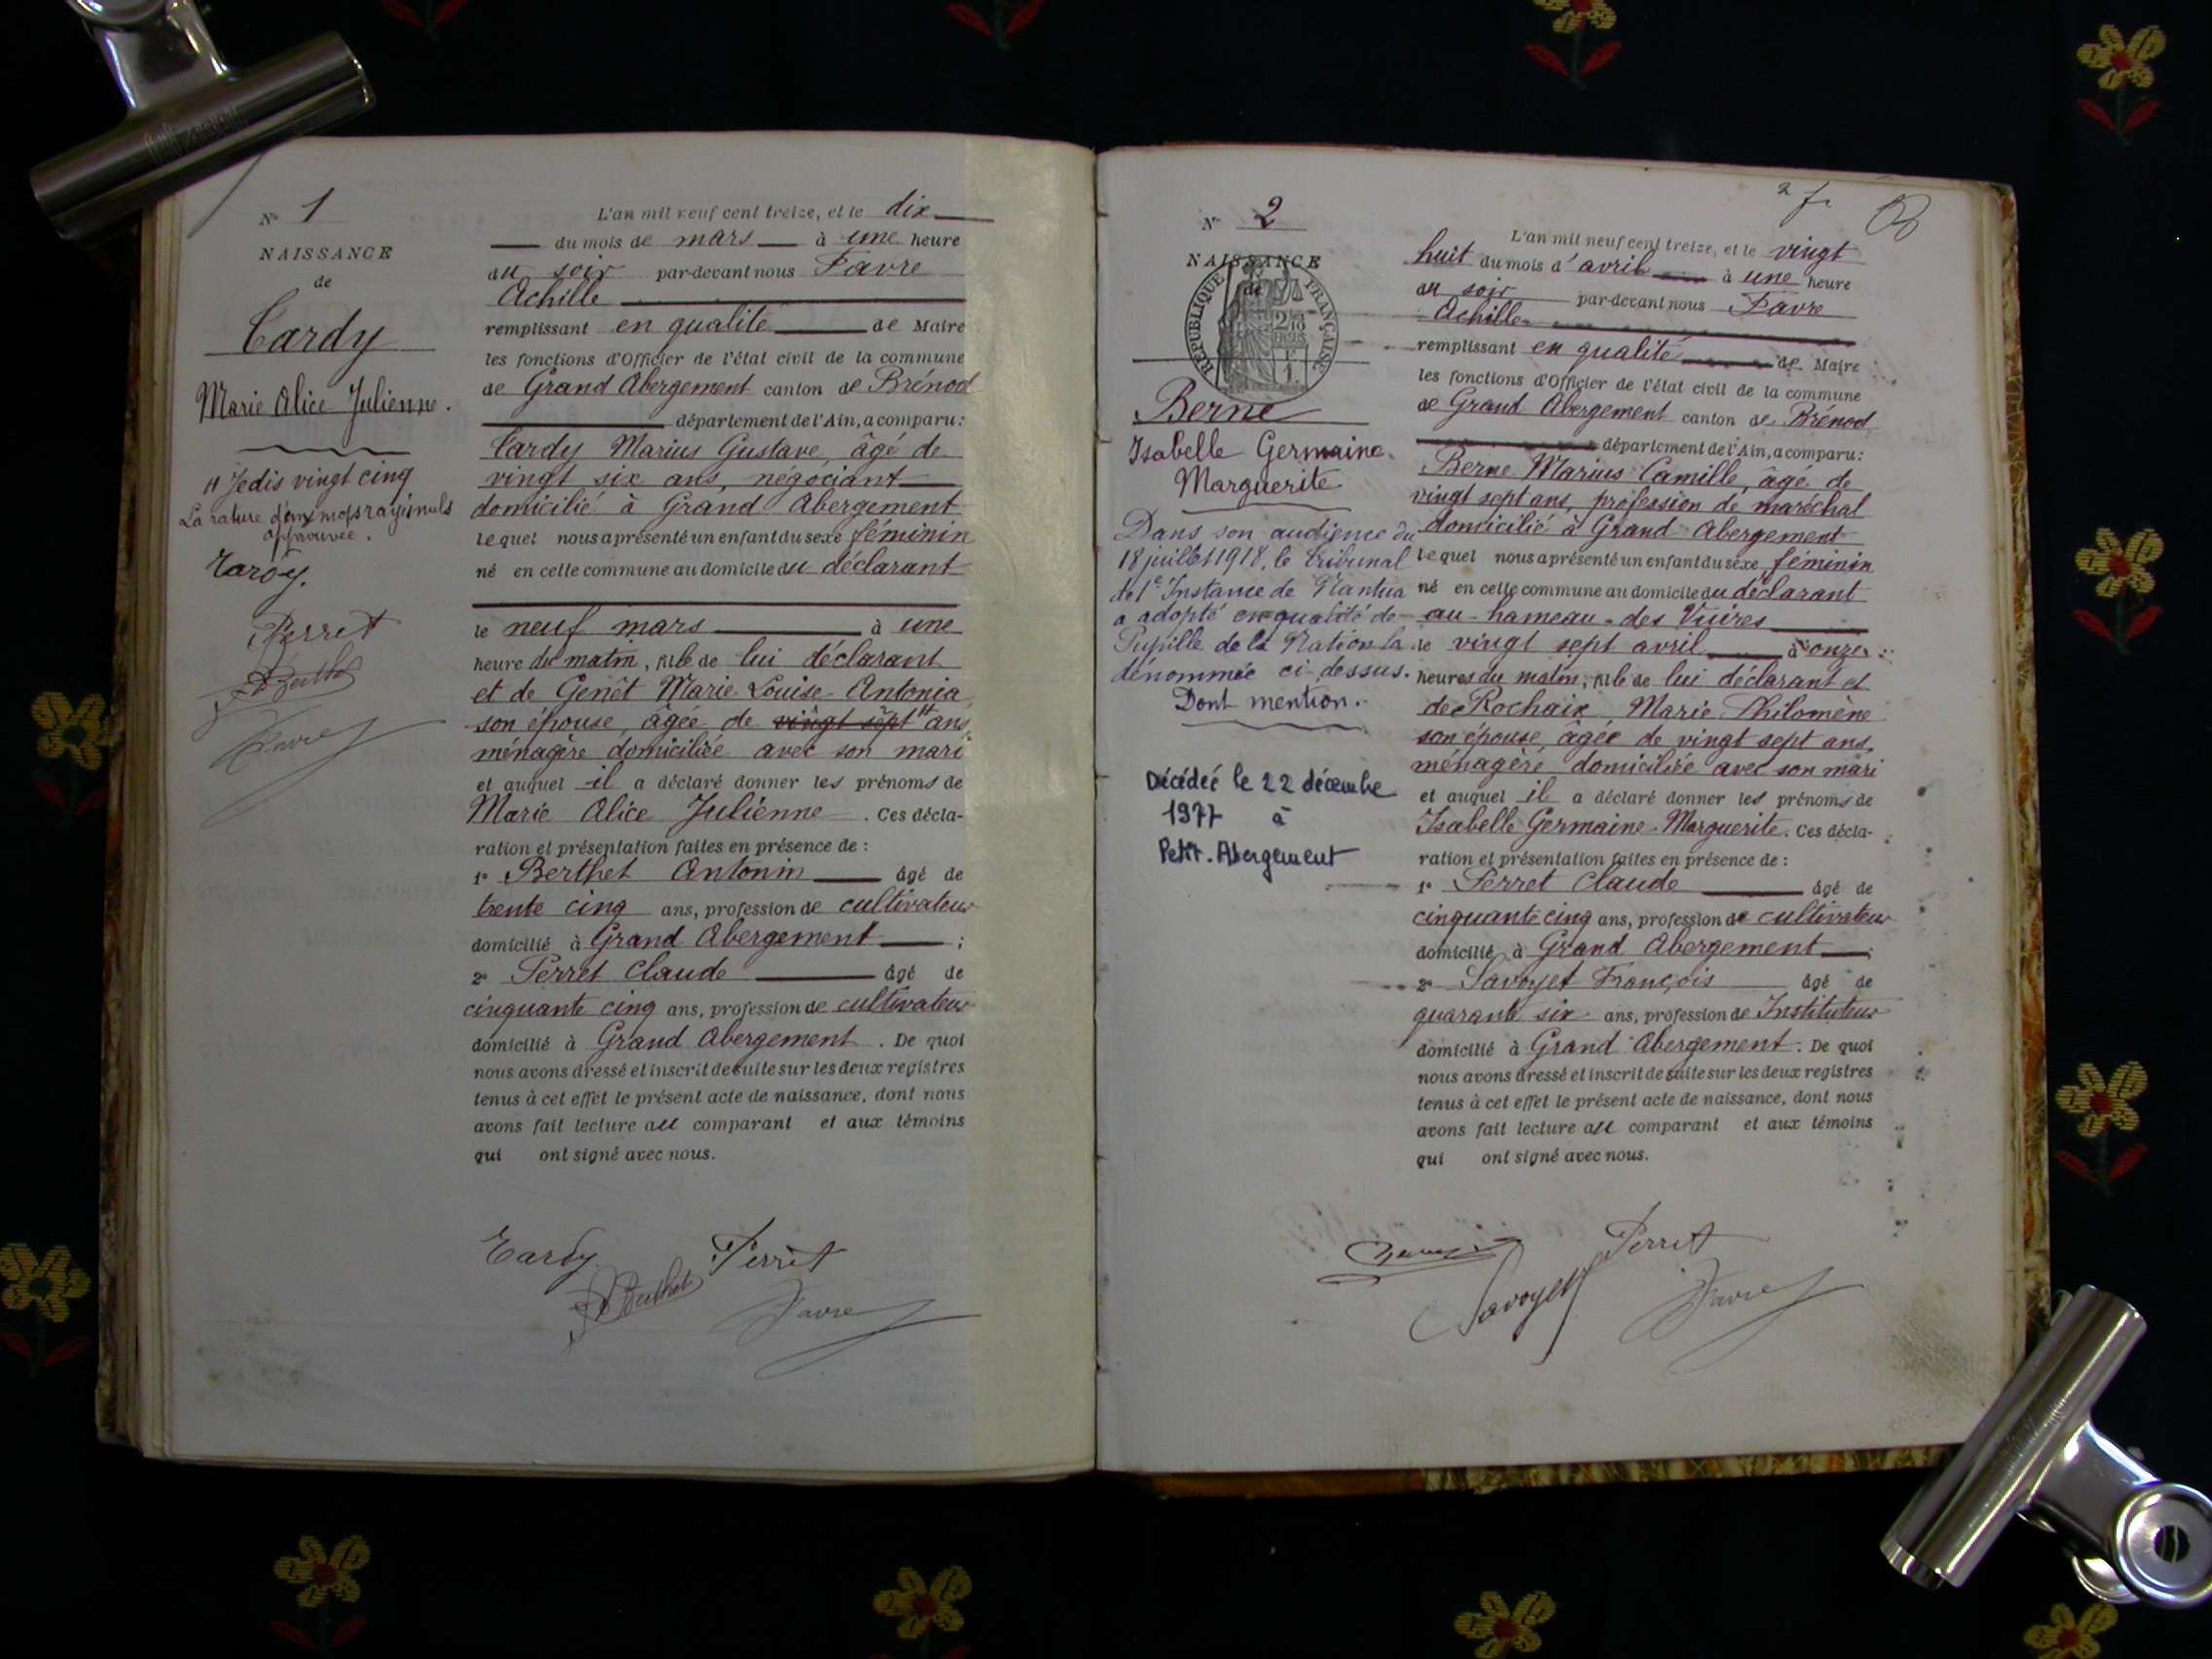 N° 1
NAISSANCE
de
Tardy
Marie Alice Julienne.
# Je dis vingt cinq
La rature de deux mots rayés nuls
approuvée.
Tardy.
Perret
Berthet
Favre
L'an mil neuf cent treize, et le dix
du mois de mars à une heure
du soir par-devant nous Favre
Achille
remplissant en qualité de Maire
les fonctions d'Officier de l'état civil de la commune
de Grand Abergement canton de Brénod
département de l'Ain, a comparu:
Tardy Marius Gustave, âgé de
vingt six ans, négociant
domicilié à Grand Abergement
lequel nous a présenté un enfant du sexe féminin
né en cette commune au domicile du déclarant
le neuf mars à une
heure du matin, fille de lui déclarant
et de Genêt Marie Louise Antonia
son épouse, âgée de vingt sept # ans,
ménagère domiciliée avec son mari
et auquel il a déclaré donner les prénoms de
Marie Alice Julienne. Ces décla-
ration et présentation faites en présence de :
1° Berthet Antonin âgé de
trente cinq ans, profession de cultivateur
domicilié à Grand Abergement ;
2° Perret Claude âgé de
cinquante cinq ans, profession de cultivateur
domicilié à Grand Abergement. De quoi
nous avons dressé et inscrit de suite sur les deux registres
tenus à cet effet le présent acte de naissance, dont nous
avons fait lecture au comparant et aux témoins
qui ont signé avec nous.
Tardy Perret
Berthet Favre
2 f.
N° 2
NAISSANCE
de
RÉPUBLIQUE FRANÇAISE
Berne
Isabelle Germaine
Marguerite
Dans son audience du
18 juillet 1918, le tribunal
de 1e Instance de Nantua
a adopté en qualité de
Pupille de la Nation la
dénommée ci-dessus.
Dont mention.
Décédée le 22 décembre
1977 à
Petit-Abergement
L'an mil neuf cent treize, et le vingt
huit du mois d'avril à une heure
du soir par-devant nous Favre
Achille
remplissant en qualité de Maire
les fonctions d'Officier de l'état civil de la commune
de Grand Abergement canton de Brénod
département de l'Ain, a comparu:
Berne Marius Camille, âgé de
vingt sept ans, profession de maréchal
domicilié à Grand Abergement
lequel nous a présenté un enfant du sexe féminin
né en cette commune au domicile du déclarant
au hameau des Vuires
le vingt sept avril à onze
heures du matin, fille de lui déclarant et
de Rochaix Marie Philomène
son épouse, âgée de vingt sept ans,
ménagère, domiciliée avec son mari
et auquel il a déclaré donner les prénoms de
Isabelle Germaine Marguerite. Ces décla-
ration et présentation faites en présence de :
1° Perret Claude âgé de
cinquante cinq ans, profession de cultivateur
domicilié à Grand Abergement ;
2° Savoyet François âgé de
quarante six ans, profession de Instituteur
domicilié à Grand Abergement. De quoi
nous avons dressé et inscrit de suite sur les deux registres
tenus à cet effet le présent acte de naissance, dont nous
avons fait lecture au comparant et aux témoins
qui ont signé avec nous.
Perret
Savoyet Favre